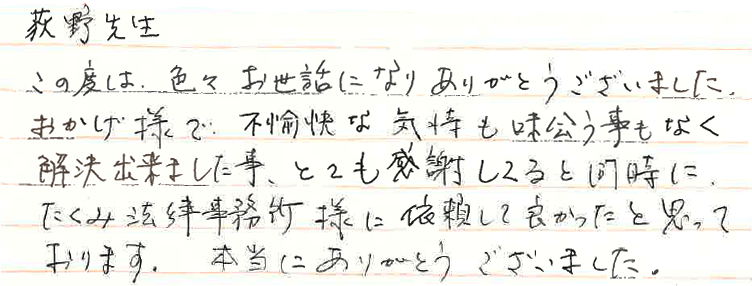 荻野先生
この度は、色々お世話になりありがとうございました。
おかげ様で、不愉快な気持も味会う事もなく
解決出来ました事、とても感謝してると同時に、
たくみ法律事務所様に依頼して良かったと思って
おります。 本当にありがとうございました。